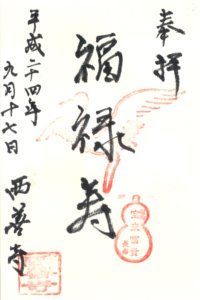 奉拝
福禄寿
平成二十四年
九月十七日
西善寺